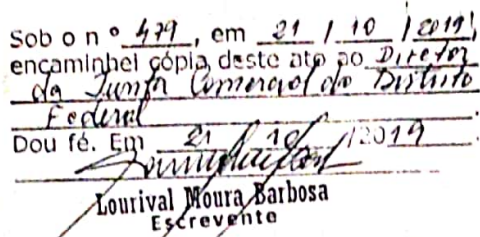 Sob o n º 479, em 21 / 10 / 2019,
encaminhei cópia deste ato ao Diretor
da Junta Comercial do Distrito
Federal.
Dou fé. Em 21 10 / 2019.
Lourival Moura Barbosa
Escrevente